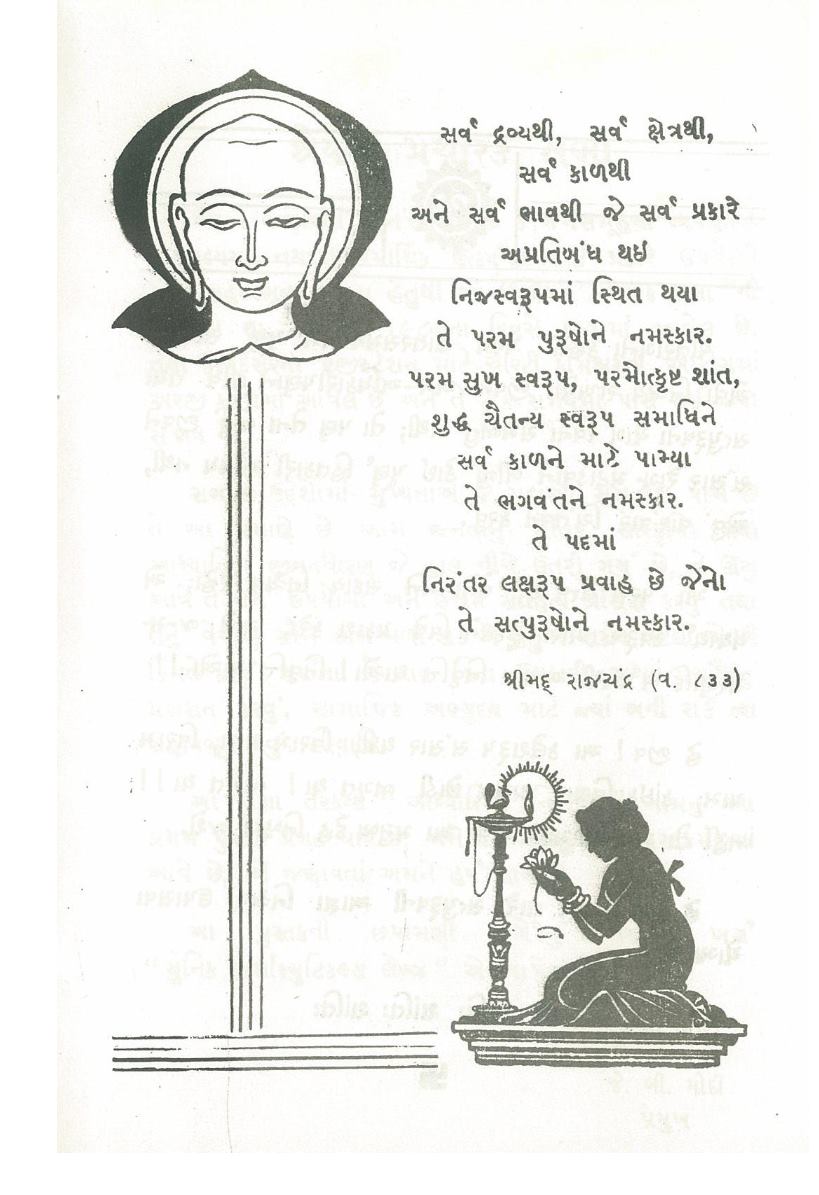 સર્વ દ્રવ્યથી, સર્વ ક્ષેત્રથી,
સર્વ કાળથી
અને સર્વ ભાવથી જે સર્વ પ્રકારે
અપ્રતિબંધ થઇ
નિજસ્વરૂપમાં સ્થિત થયા
તે પરમ પુરૂષોને નમસ્કાર.
પરમ સુખ સ્વરૂપ, પરમોત્કૃષ્ટ શાંત,
શુદ્ધ ચૈતન્ય સ્વરૂપ સમાધિને
સર્વ કાળને માટે પામ્યા
તે ભગવંતને નમસ્કાર.
તે પદમાં
નિરંતર લક્ષરૂપ પ્રવાહ છે જેનો
તે સત્પુરૂષોને નમસ્કાર.
શ્રીમદ્ રાજચંદ્ર (વ. ૮૩૩)